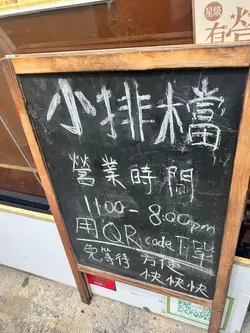 星級
有營
小排檔
營業時間
11:00 - 8:00pm
用QR code 下單
免等待 方便
快快快